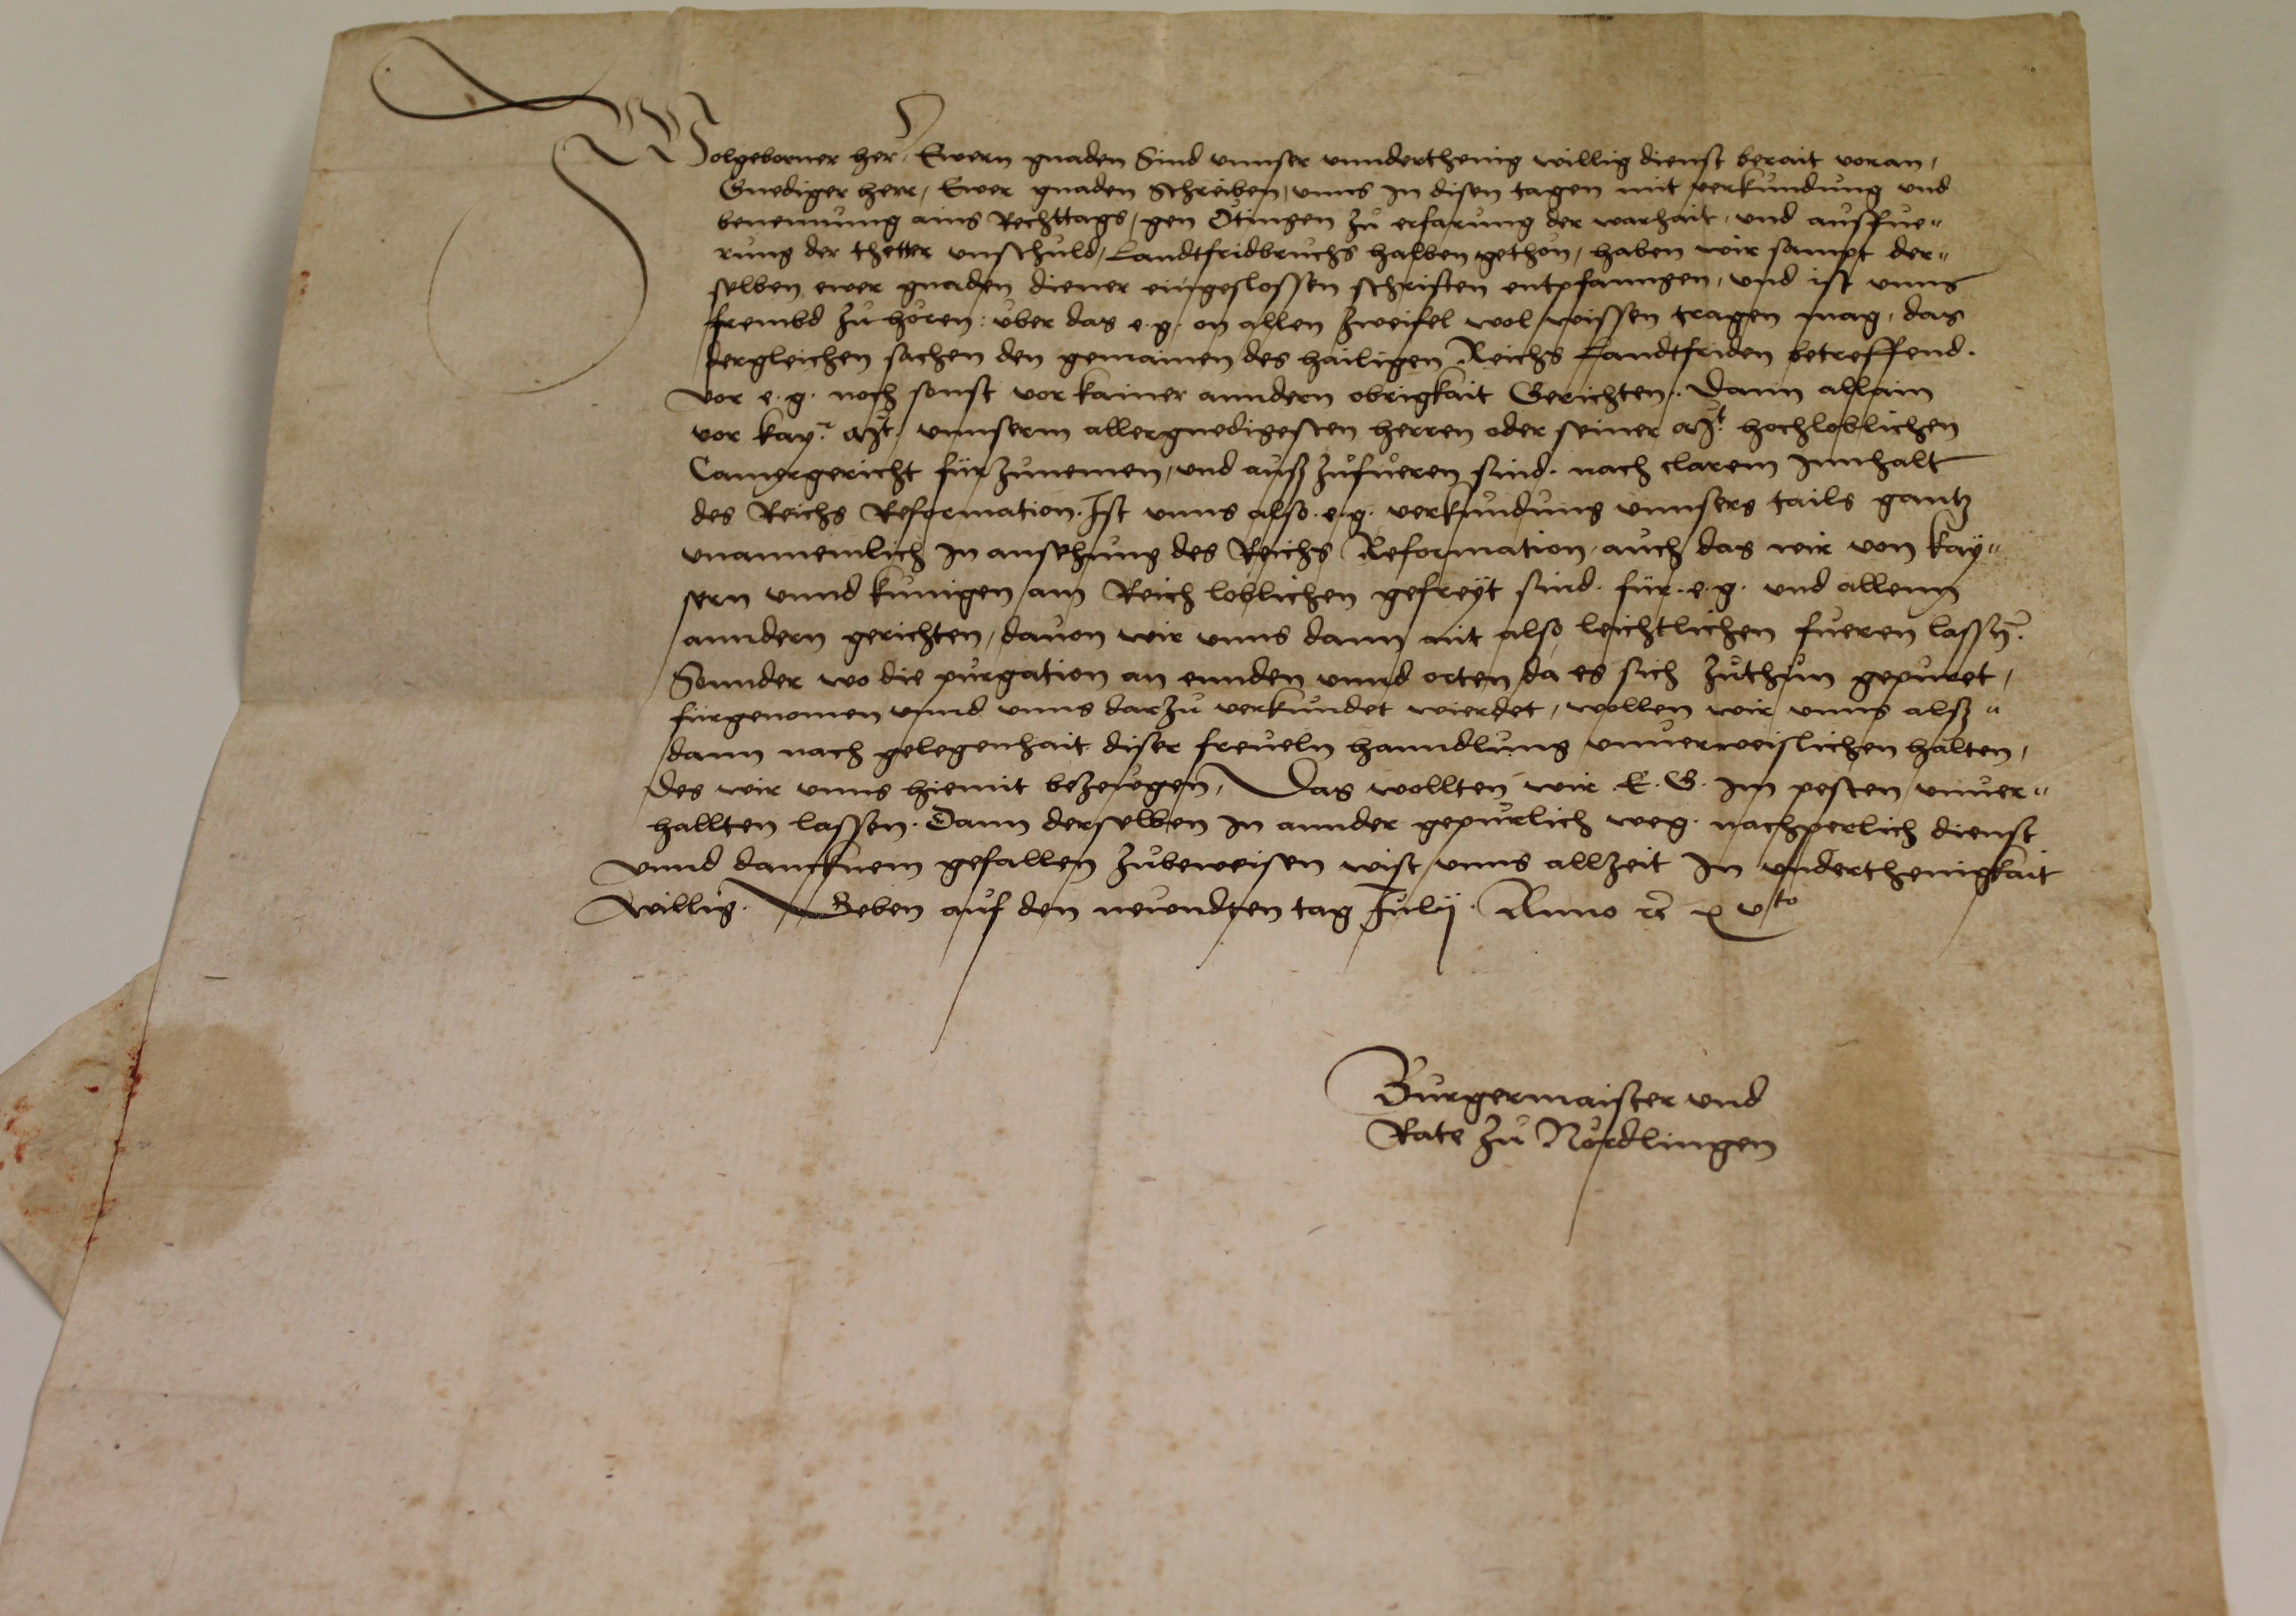 Wolgeborner her, Ewern gnaden Sind unnser unnderthenig willig dienst berait voran,
Gnediger herr, Ewer gnaden Schreiben, unns in disen tagen mit verkundung und
benennung ains Rechttags, gen Ötingen zu erfarung der warhait, und ausfue„
rung der thetter unschuld, Landtfridbruchs halben gethon, haben wir sampt der„
selben ewer gnaden diener eingeslossen schrifften entpfanngen, und ist unns
frembd zu hören: über das e. g. on allen zweifel wol wissen tragen mag, das
dergleichen sachen den gemainen des hailigen Reichs Landtfriden betreffend.
vor e. g. noch sonst vor kainer anndern obrigkait Gerichten. Dann allain
vor kayr. Mt. unnserm allergnedigesten herren oder seiner Mt. hochloblichen
Camergericht fürzunemen, und auß zufüeren sind. nach clarem Innhalt
des Reichs Reformation. Ist unns also. e. g. verkundung unnsers tails gantz
unannemlich in ansehung des Reichs Reformation, auch das wir von kay„
sern unnd kunigen am Reich loblichen gefreyt sind. für. e. g. und allenn
anndern gerichten, davon wir unns dann nit also leichtlichen fueren lassen.
Sonnder wo die purgation an ennden unnd orten da es sich zuthun gepuret,
fürgenomen unnd unns darzu verkundet wierdet, wollen wir unns alß„
dann nach gelegenhait diser freveln hanndlung unverweislichen halten,
des wir unns hiemit bezeugen, Das wollten wir. E. G. im pesten unver„
hallten lassen. Dann derselben in annder gepürlich weg. nachperlich dienst
unnd danncknem gefallen zubeweisen wist unns allzeit In underthenigkait
willig. Geben auf den neundten tag Julij. Anno rc xvto
Burgermaister und
Rate zu Nördlingen